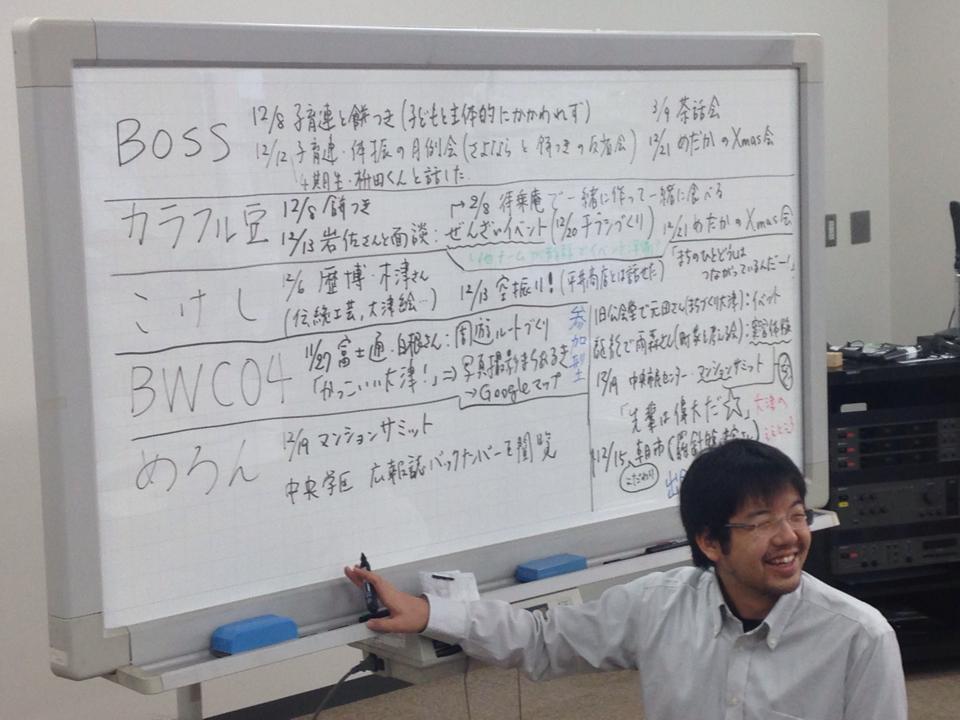 BOSS
12/8 子育連と餅つき(子どもと主体的にかかわれず)
3/9 茶話会
12/12 子育連・体振の月例会(さよならと餅つきの反省会)
12/21 めだかのXmas会
4期生・桝田くんと話した
カラフル豆
12/8 餅つき
→2/8 待乗庵で一緒に作って一緒に食べる
12/13 岩佐さんと面談:ぜんざいイベント(12/20 チラシづくり)
12/21 めだかのXmas会
こけし
12/6 歴博・木津さん
(伝統工芸,大津絵…)
12/13 空振り!(平井商店とは話せた)
「まちのひとどうしは
つながっているんだー!」
BWC04
11/27 富士通・白根さん:周遊ルートづくり
「かっこいい大津!」⇒写真撮影まちあるき
→Googleマップ
参加型
めろん
12/19 マンションサミット
中央学区 広報誌バックナンバーを閲覧
旧公会堂で元田さん(まちづくり大津):イベント
12/19 中央市民センター・マンションサミット
「先輩は偉大だ☆」
大津の
ええところ
12/15、朝市
こだわり